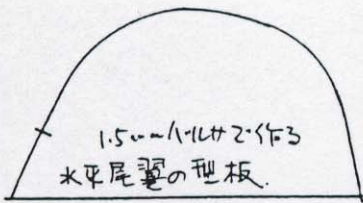 1.5mmバルサで作る
水平尾翼の型板.